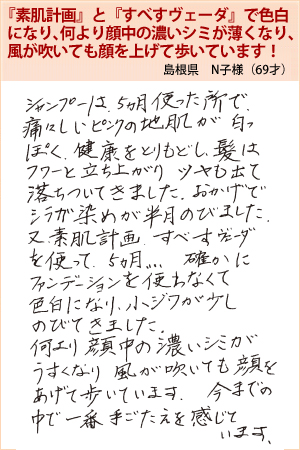 『素肌計画』と『すべすヴェーダ』で色白
になり、何より顔中の濃いシミが薄くなり、
風が吹いても顔を上げて歩いています！
島根県　N子様（69才）
シャンプーは、5ヵ月使った所で、
痛々しいピンクの地肌が白っ
ぽく、健康をとりもどし、髪は
フワーと立ち上がり ツヤも出て
落ちついてきました。おかげで
シラガ染めが半月のびました。
又、素肌計画、すべすヴェーダ
を使って、5ヵ月、、、、 確かに
ファンデーションを使わなくて
色白になり、小ジワが少し
のびてきました。
何より 顔中の濃いシミが
うすくなり 風が吹いても 顔を
あげて歩いています。 今までの
中で一番 手ごたえを感じて
います。